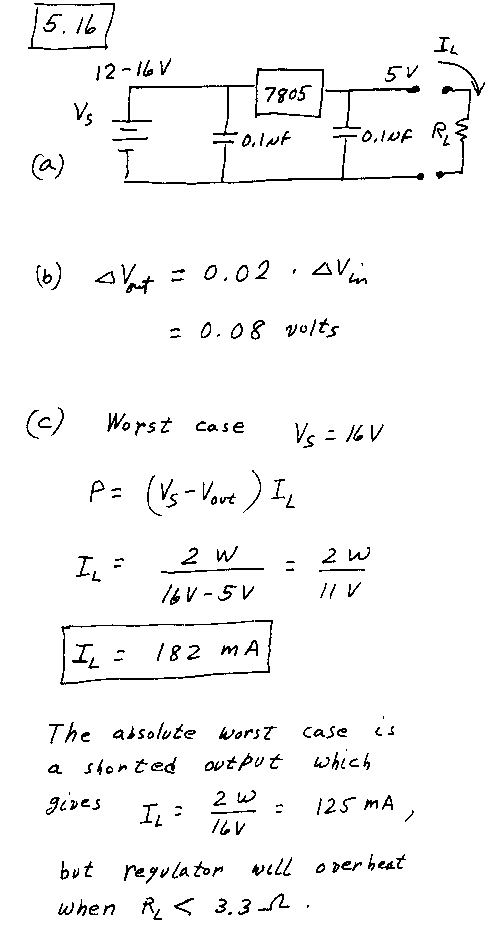 5.16
I_L
12-16V
5V
V_S
7805
0.1µF
0.1µF
R_L
(a)
(b) ΔV_out = 0.02 · ΔV_in
= 0.08 volts
(c) Worst case V_S = 16V
P = (V_S - V_out) I_L
I_L = 2 W / 16V - 5V = 2 W / 11 V
I_L = 182 mA
The absolute worst case is
a shorted output which
gives I_L = 2 W / 16V = 125 mA,
but regulator will overheat
when R_L < 3.3 Ω.